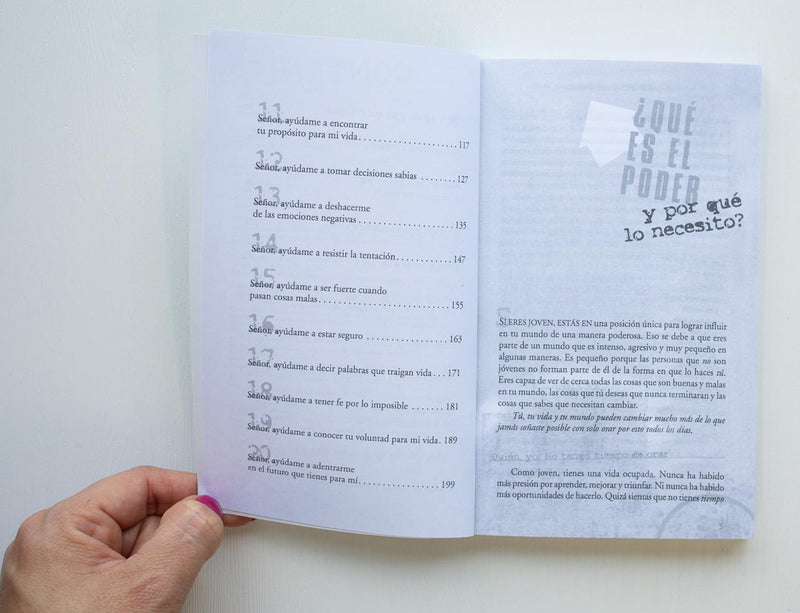 11
Señor, ayúdame a encontrar
tu propósito para mi vida. . . . . . . . . . . . . . . . . . . . . . 117
12
Señor, ayúdame a tomar decisiones sabias . . . . . . . 127
13
Señor, ayúdame a deshacerme
de las emociones negativas . . . . . . . . . . . . . . . . . . . . 135
14
Señor, ayúdame a resistir la tentación. . . . . . . . . . . . 147
15
Señor, ayúdame a ser fuerte cuando
pasan cosas malas. . . . . . . . . . . . . . . . . . . . . . . . . . . 155
16
Señor, ayúdame a estar seguro . . . . . . . . . . . . . . . . . 163
17
Señor, ayúdame a decir palabras que traigan vida . . . 171
18
Señor, ayúdame a tener fe por lo imposible . . . . . . . 181
19
Señor, ayúdame a conocer tu voluntad para mi vida. 189
20
Señor, ayúdame a adentrarme
en el futuro que tienes para mí. . . . . . . . . . . . . . . . . 199
¿QUÉ
ES EL
PODER
y por qué
lo necesito?
SI ERES JOVEN, ESTÁS EN una posición única para lograr influir
en tu mundo de una manera poderosa. Eso se debe a que eres
parte de un mundo que es intenso, agresivo y muy pequeño en
algunas maneras. Es pequeño porque las personas que no son
jóvenes no forman parte de él de la forma en que lo haces tú.
Eres capaz de ver de cerca todas las cosas que son buenas y malas
en tu mundo, las cosas que tú deseas que nunca terminaran y las
cosas que sabes que necesitan cambiar.
Tú, tu vida y tu mundo pueden cambiar mucho más de lo que
jamás soñaste posible con solo orar por esto todos los días.
¿Quién, yo? No tengo tiempo de orar
Como joven, tienes una vida ocupada. Nunca ha habido
más presión por aprender, mejorar y triunfar. Ni nunca ha habido
más oportunidades de hacerlo. Quizá sientas que no tienes tiempo
5